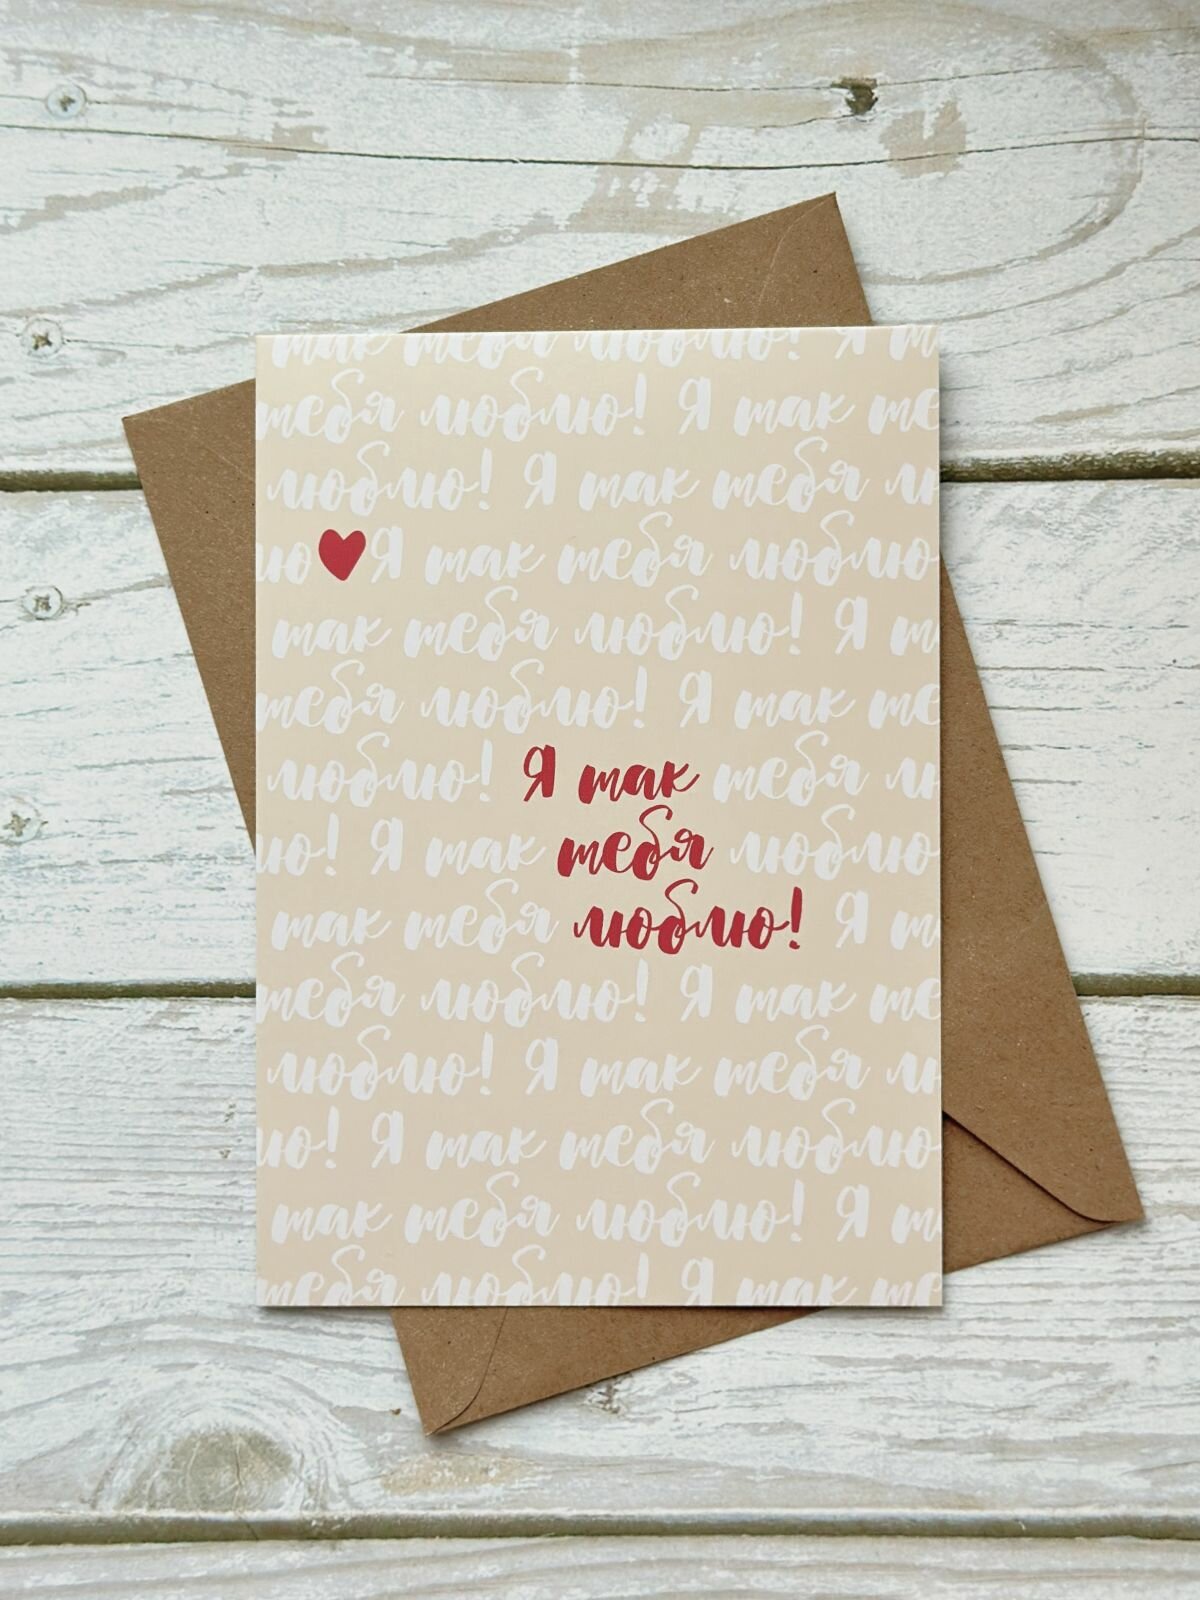 так тебя люблю! Я т
тебя люблю! Я так те
люблю! Я так тебя лю
ю Я так тебя люблю
так тебя люблю! Я т
тебя люблю! Я так те
люблю! Я так тебя лю
ю! Я так тебя люблю
так тебя люблю! Я т
тебя люблю! Я так те
люблю! Я так тебя лю
ю! Я так тебя люблю
так тебя люблю! Я т
тебя люблю! Я так те